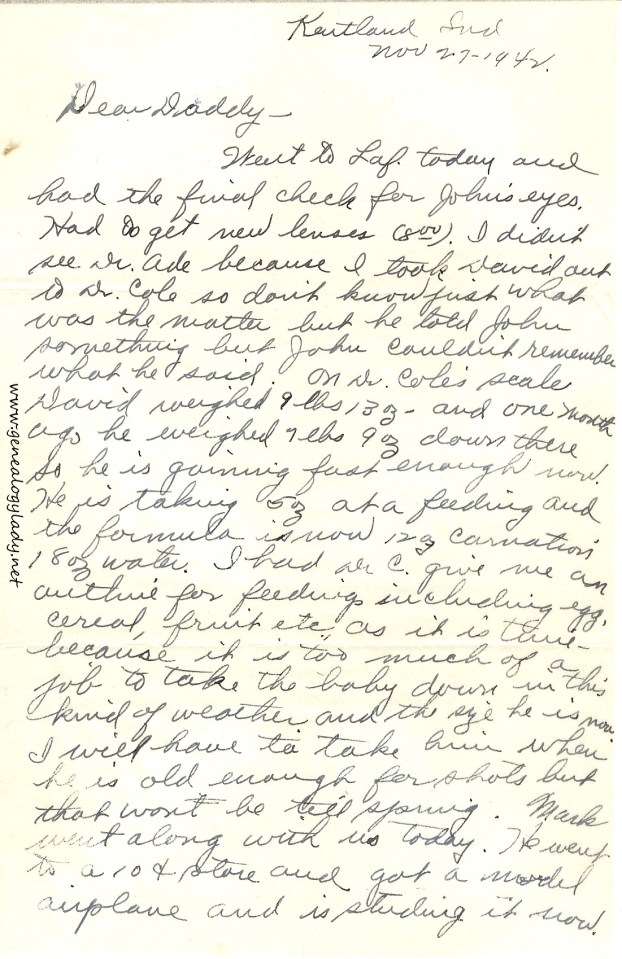 Kentland Ind
Nov 27-1942.
Dear Daddy-
Went to Laf. today and
had the final check for John's eyes.
Had to get new lenses (8.00). I didn't
see Dr. Ade because I took David out
to Dr. Cole so don't know just what
was the matter but he told John
something but John couldn't remember
what he said. On Dr. Cole's scale
David weighed 9 lbs 13 oz - and one month
ago he weighed 7 lbs 9 oz down there
so he is gaining fast enough now.
He is taking 5 oz at a feeding and
the formula is now 12 oz carnation
18 oz water. I had Dr C. give me an
outline for feedings including egg,
cereal, fruit etc as it is time-
because it is too much of a
job to take the baby down in this
kind of weather and the size he is now.
I will have to take him when
he is old enough for shots but
that won't be till spring. Mark
went along with us today. He went
to a 10¢ store and got a model
airplane and is studing it now.
www.genealogylady.net